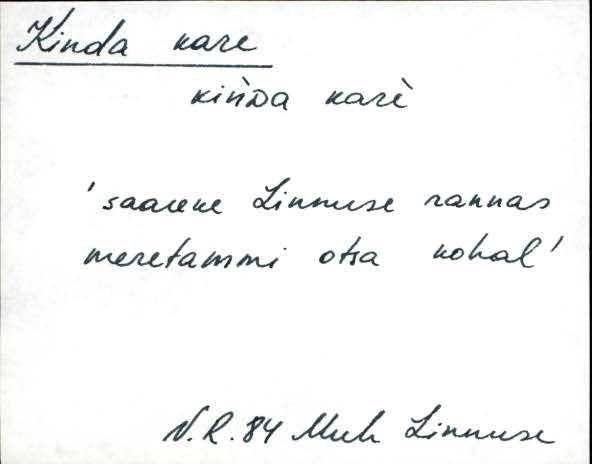 Kinda kare
kiǹᴅa karè
'saareke Linnuse rannas
meretammi otsa kohal'
N.R. 84 Muh Linnuse